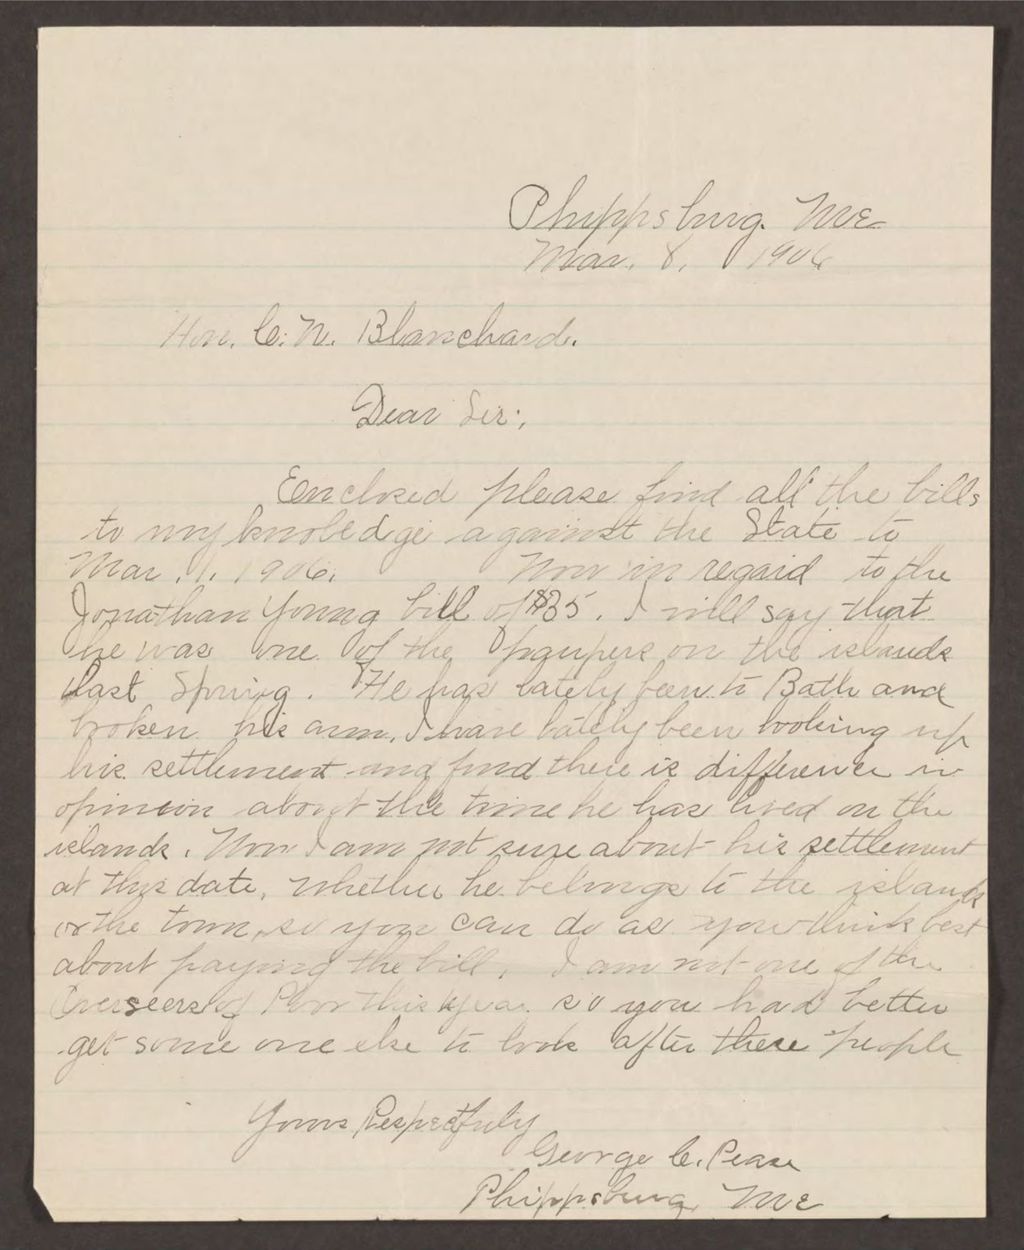 Phippsburg. Me
Mar. 8, 1906
Hon. C. N. Blanchard.
Dear Sir:,
Enclosed please find all the bills
to my knoledge against the State to
Mar. 1. 1906. Now in regard to the
Jonathan Young bill of $35. I will say that
he was one of the paupers on the islands
last Spring. He has lately been to Bath and
broken his arm. I have lately been looking up
his settlement and find there is difference in
opinion about the time he has lived on the
islands. Now I am not sure about his settlement
at this date, whether he belongs to the islands
or the town, so you can do as you think best
about paying the bill. I am not one of the
Overseers of Poor this year so you had better
get some one else to look after these people
Yours Respectfuly
George C. Pease
Phippsburg, Me